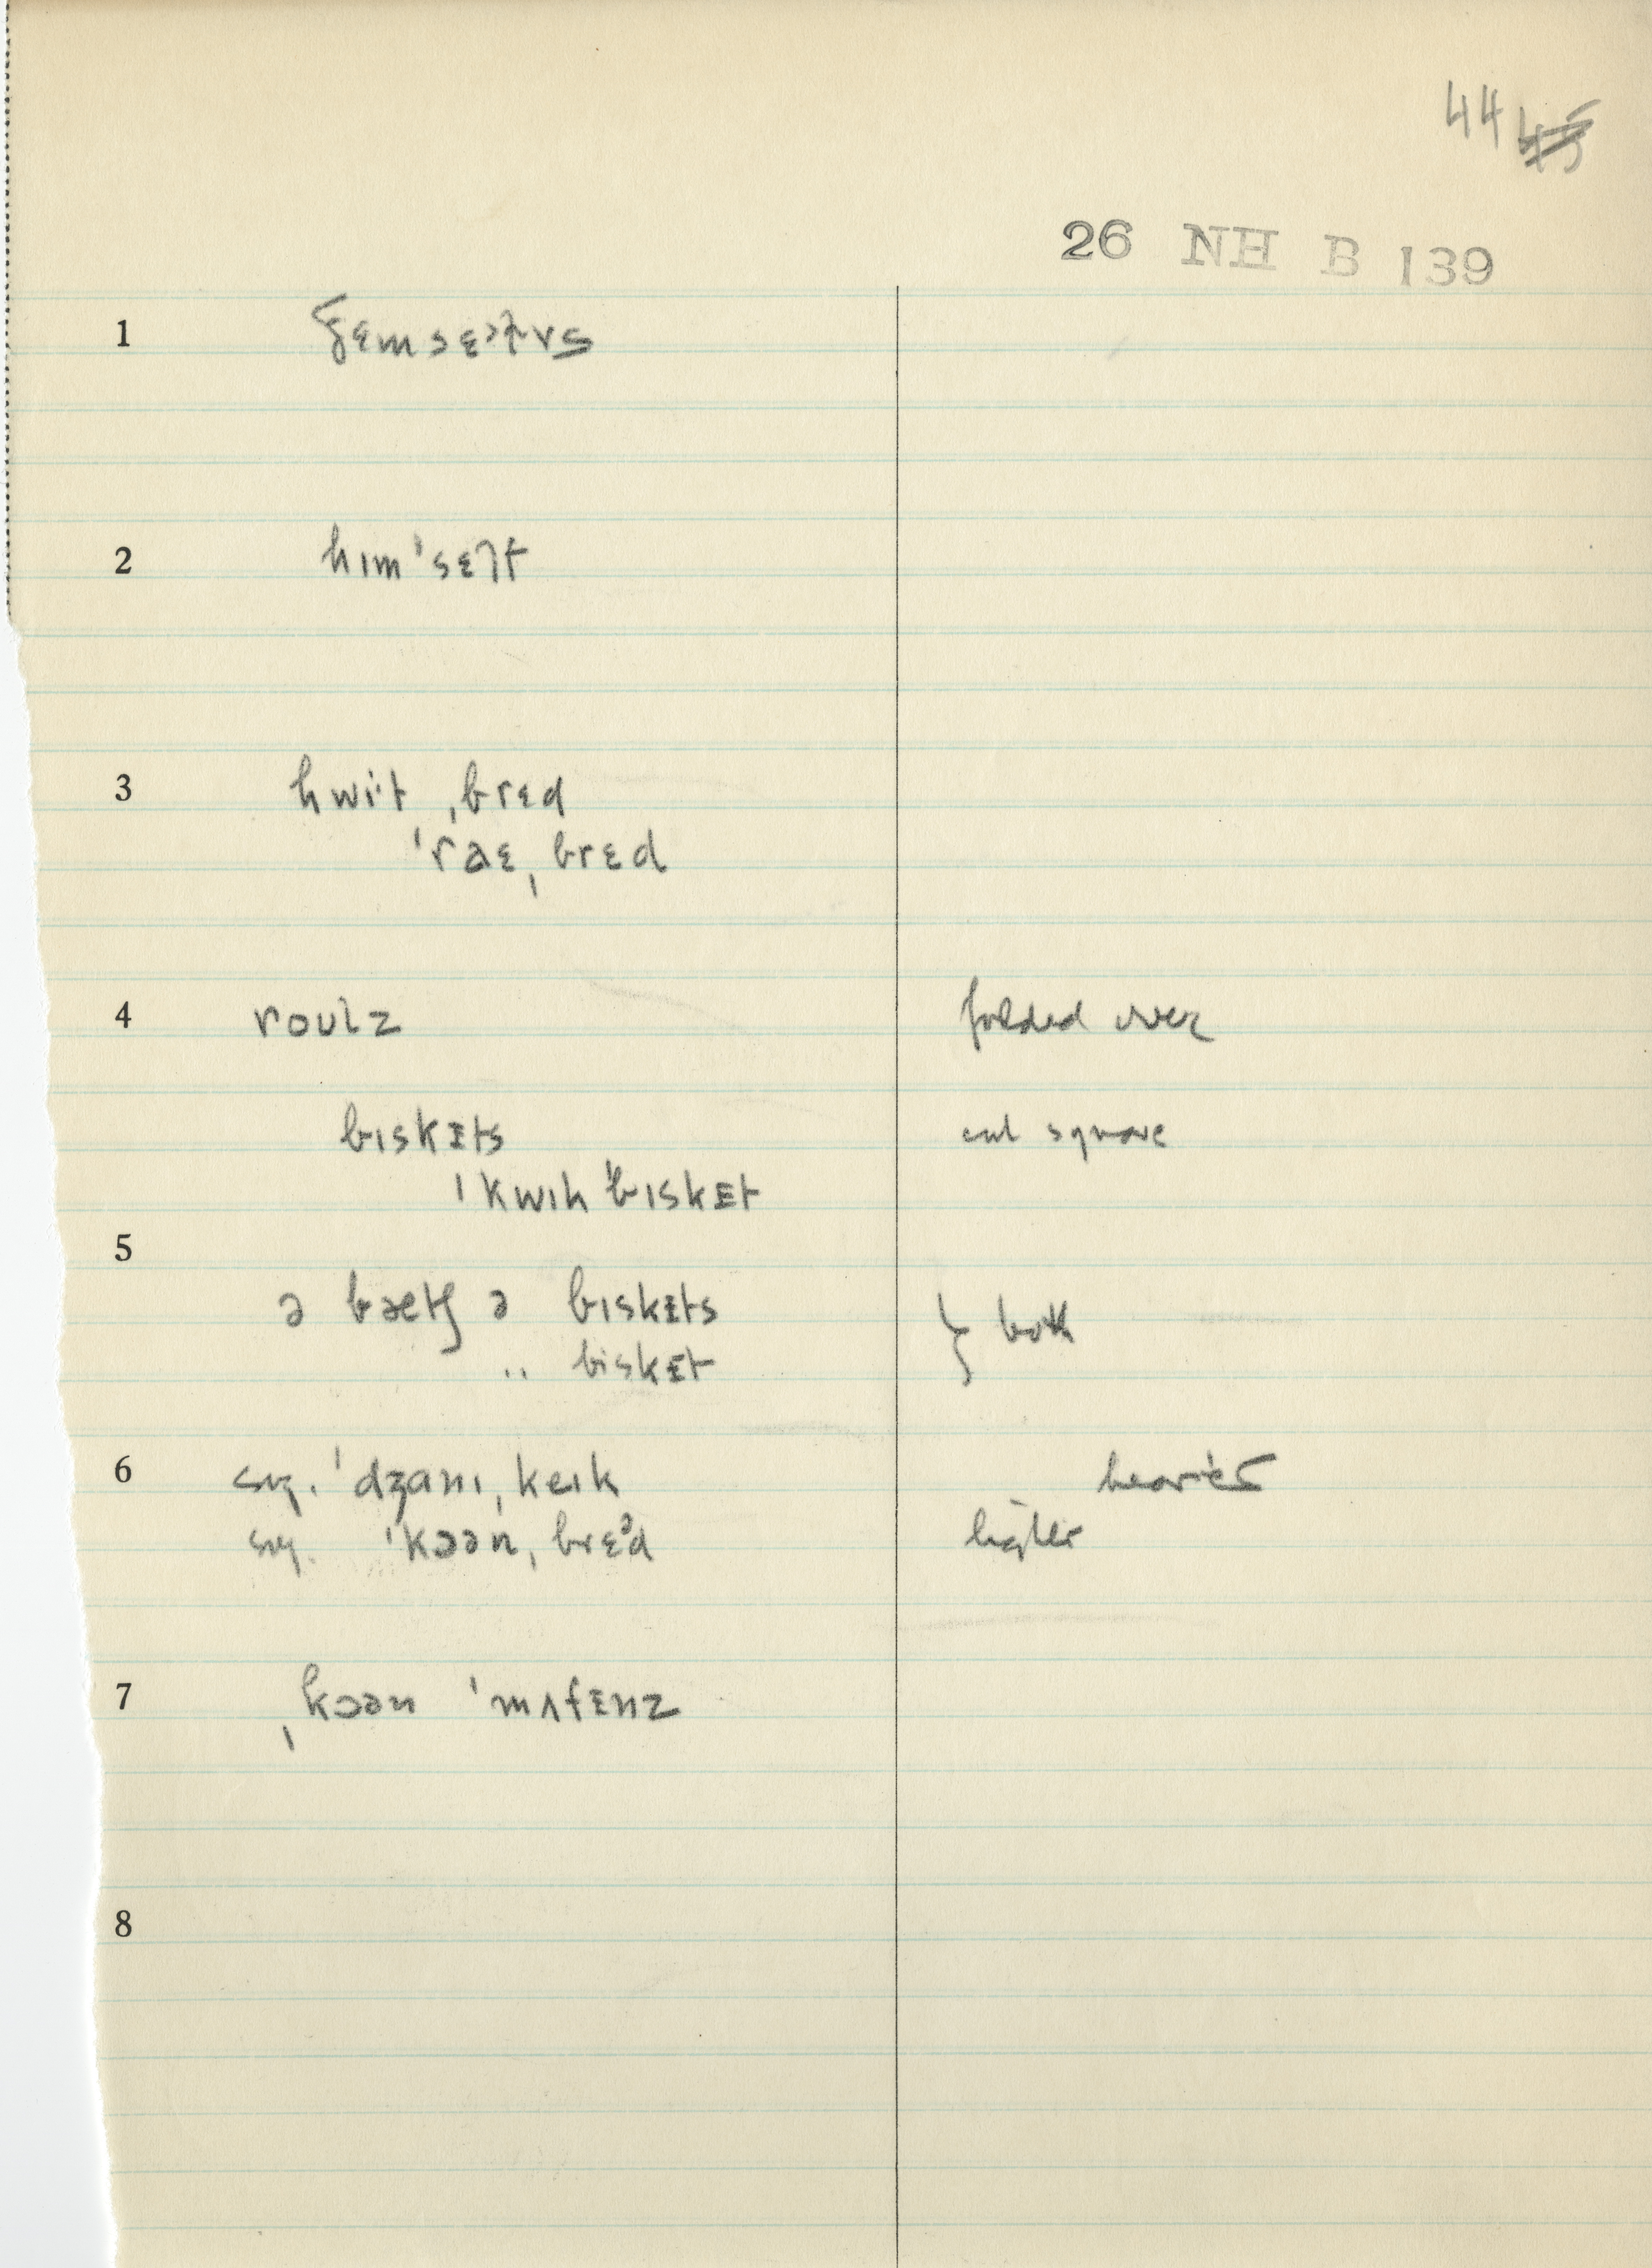 44 45
26 NH B 139
1
2 hɪm ˈsɛlf
3 hwit ˌbrɛd
ˈraɛ ˌbrɛd
4 roʊlz folded over
bɪskᴇts cut square
ˈkwɪk ˈbɪskᴇt
5
ə bætʃ ə bɪskᴇts } both
.. bɪskᴇt
6 sg. ˈdʒanɪ ˌkeɪk heavier
sg. ˈkɔən ˌbrɛᵊd lighter
7 ˌkɔən ˈmʌfᴇnz
8